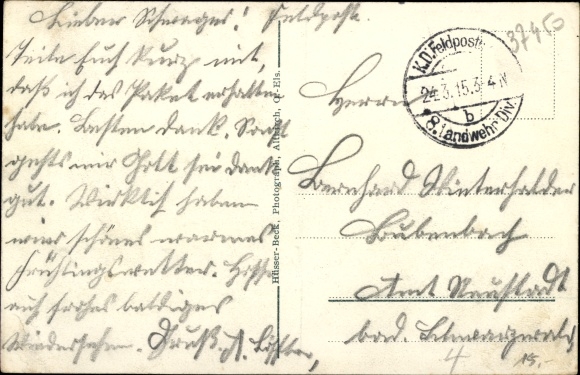 Lieber Schwager! Feldpost.
Teile Euch kurz mit,
daß ich das Paket erhalten
habe. Besten Dank. Sonst
geht's mir Gott sei Dank
gut. Wirklich haben
wir schönes warmes
Frühlingswetter. Hoffe
auf frohes baldiges
Wiedersehen. Gruß
Hüsser-Beck, Photograph, Altkirch, O.-Els.
K.D. Feldpost
24.3.15.3-4N
b
8. Landwehr Div.
37450
Herrn
Bernhard Winterhalder
Bubenbach
Amt Neustadt
bad. Schwarzwald
4
15.-